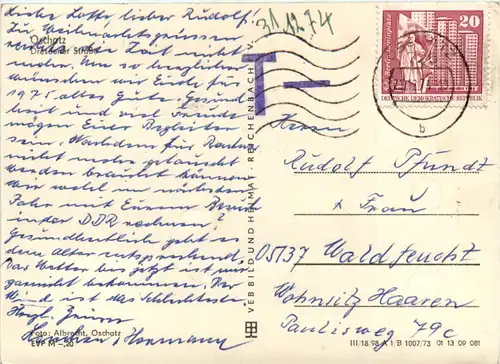 Liebe Lotte, lieber Rudolf!
Zu Weihnachtsgrüssen
Oschatz
Dresdener Straße
die Zeit nicht
mehr. Um so herzlicher
wünschen wir Euch für
1975 alles Gute. Gesund
heit und viel Freude
mögen Eure Begleiter
sein. Nachdem für Rentner
nicht mehr getauscht
werden braucht können
wir wohl im nächsten
Jahr mit Eurem Besuch
in der DDR rechnen?
Gesundheitlich geht es
dem Alter entsprechend.
Das Wetter bis jetzt ist uns
gesundt bekommen. Der
Wind ist das Schlechteste.
Herzl. Grüsse
Hermann
Foto: Albrecht, Oschatz
EVP M –,20
31.12.74
T
VEB BILD UND HEIMAT REICHENBACH I. V.
20
DEUTSCHE DEMOKRATISCHE REPUBLIK
b
Herrn
Rudolf Pfundt
+ Frau
05137 Waldfeucht
Wohnsitz Haaren
Paulisweg 79c
III/18/98 A 1/B 1007/73 01 13 09 081